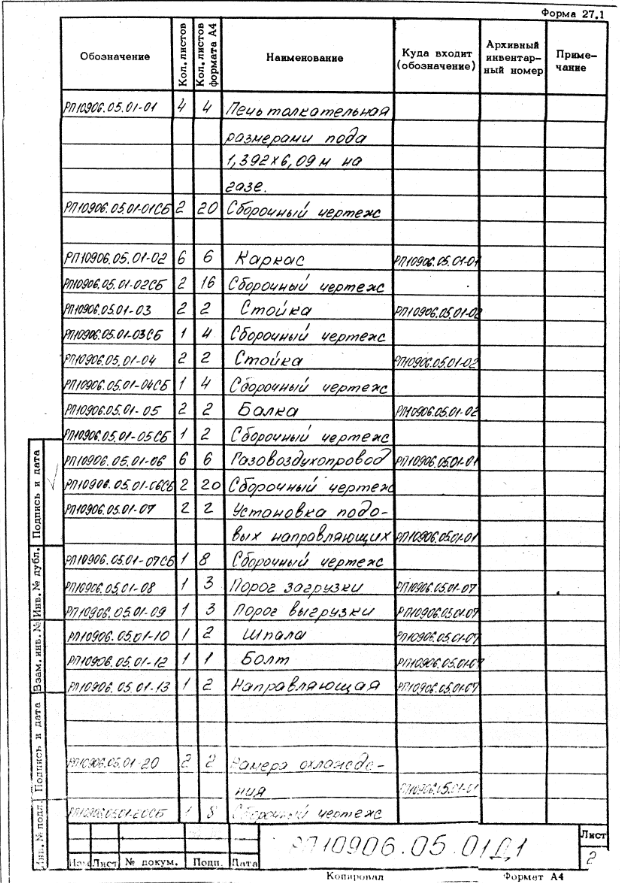 Форма 27.1
Обозначение Кол. листов Кол. листов формата А4 Наименование Куда входит (обозначение) Архивный инвентар- ный номер Приме- чание
РП10906.05.01-01 4 4 Печь толкательная
размерами пода
1,392х6,09 м на
газе.
РП10906.05.01-01СБ 2 20 Сборочный чертеж
РП10906.05.01-02 6 6 Каркас РП10906.05.01-01
РП10906.05.01-02СБ 2 16 Сборочный чертеж
РП10906.05.01-03 2 2 Стойка РП10906.05.01-02
РП10906.05.01-03СБ 1 4 Сборочный чертеж
РП10906.05.01-04 2 2 Стойка РП10906.05.01-02
РП10906.05.01-04СБ 1 4 Сборочный чертеж
РП10906.05.01-05 2 2 Балка РП10906.05.01-02
РП10906.05.01-05СБ 1 2 Сборочный чертеж
РП10906.05.01-06 6 6 Газовоздухопровод РП10906.05.01-01
РП10906.05.01-06СБ 2 20 Сборочный чертеж
РП10906.05.01-07 2 2 Установка подо-
вых направляющих РП10906.05.01-01
РП10906.05.01-07СБ 1 8 Сборочный чертеж
РП10906.05.01-08 1 3 Порог загрузки РП10906.05.01-07
РП10906.05.01-09 1 3 Порог выгрузки РП10906.05.01-07
РП10906.05.01-10 1 2 Шпала РП10906.05.01-07
РП10906.05.01-12 1 1 Болт РП10906.05.01-07
РП10906.05.01-13 1 2 Направляющая РП10906.05.01-07
РП10906.05.01-20 2 2 Камера охлажде-
ния РП10906.05.01-01
РП10906.05.01-20СБ 1 8 Сборочный чертеж
Подпись и дата
Инв. № дубл.
Взам. инв. №
Подпись и дата
Инв. № подл.
РП10906.05.01Д1
Лист
2
Изм Лист № докум. Подп. Дата
Копировал Формат А4